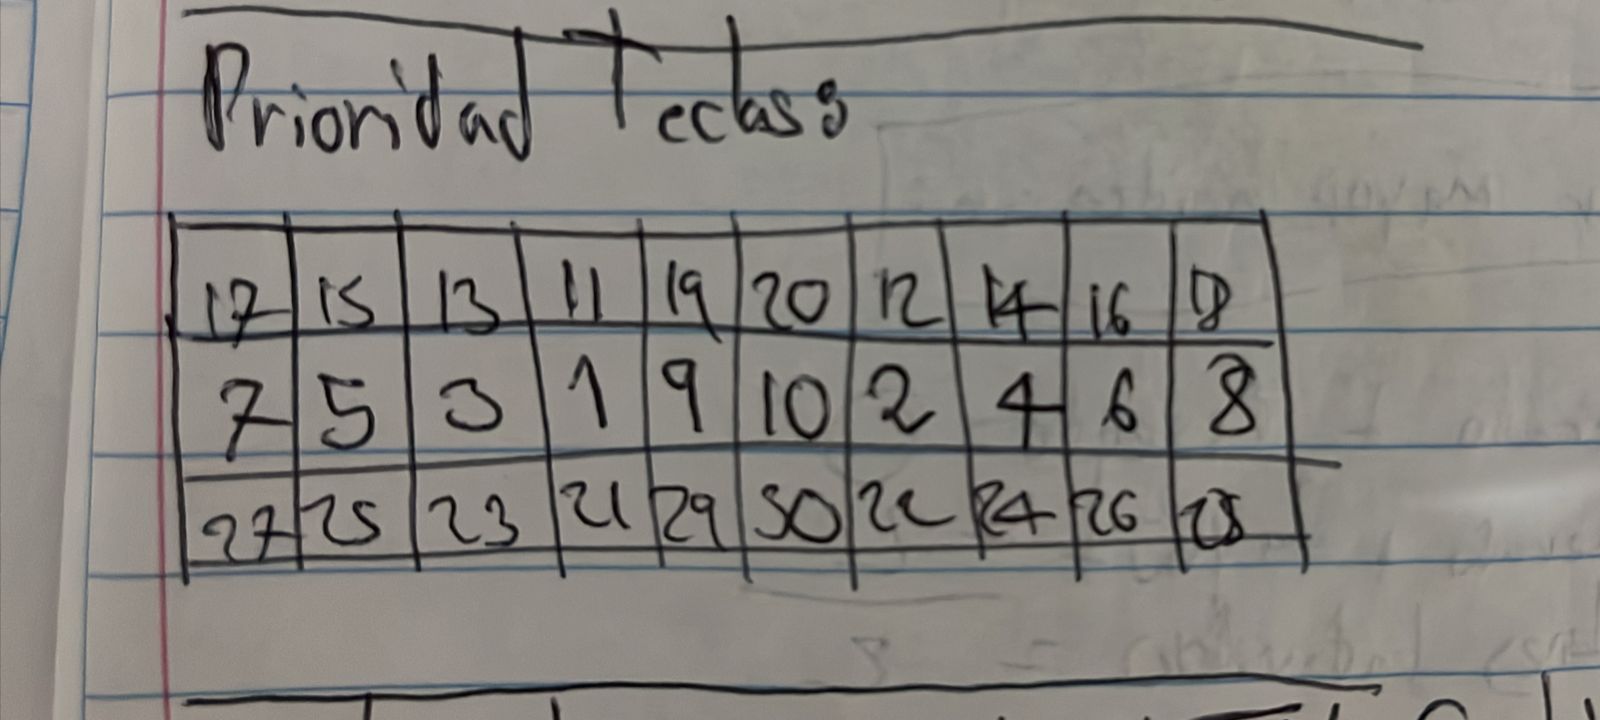 Prioridad Teclas
17 15 13 11 19 20 12 14 16 18
7 5 3 1 9 10 2 4 6 8
27 25 23 21 29 30 22 24 26 28